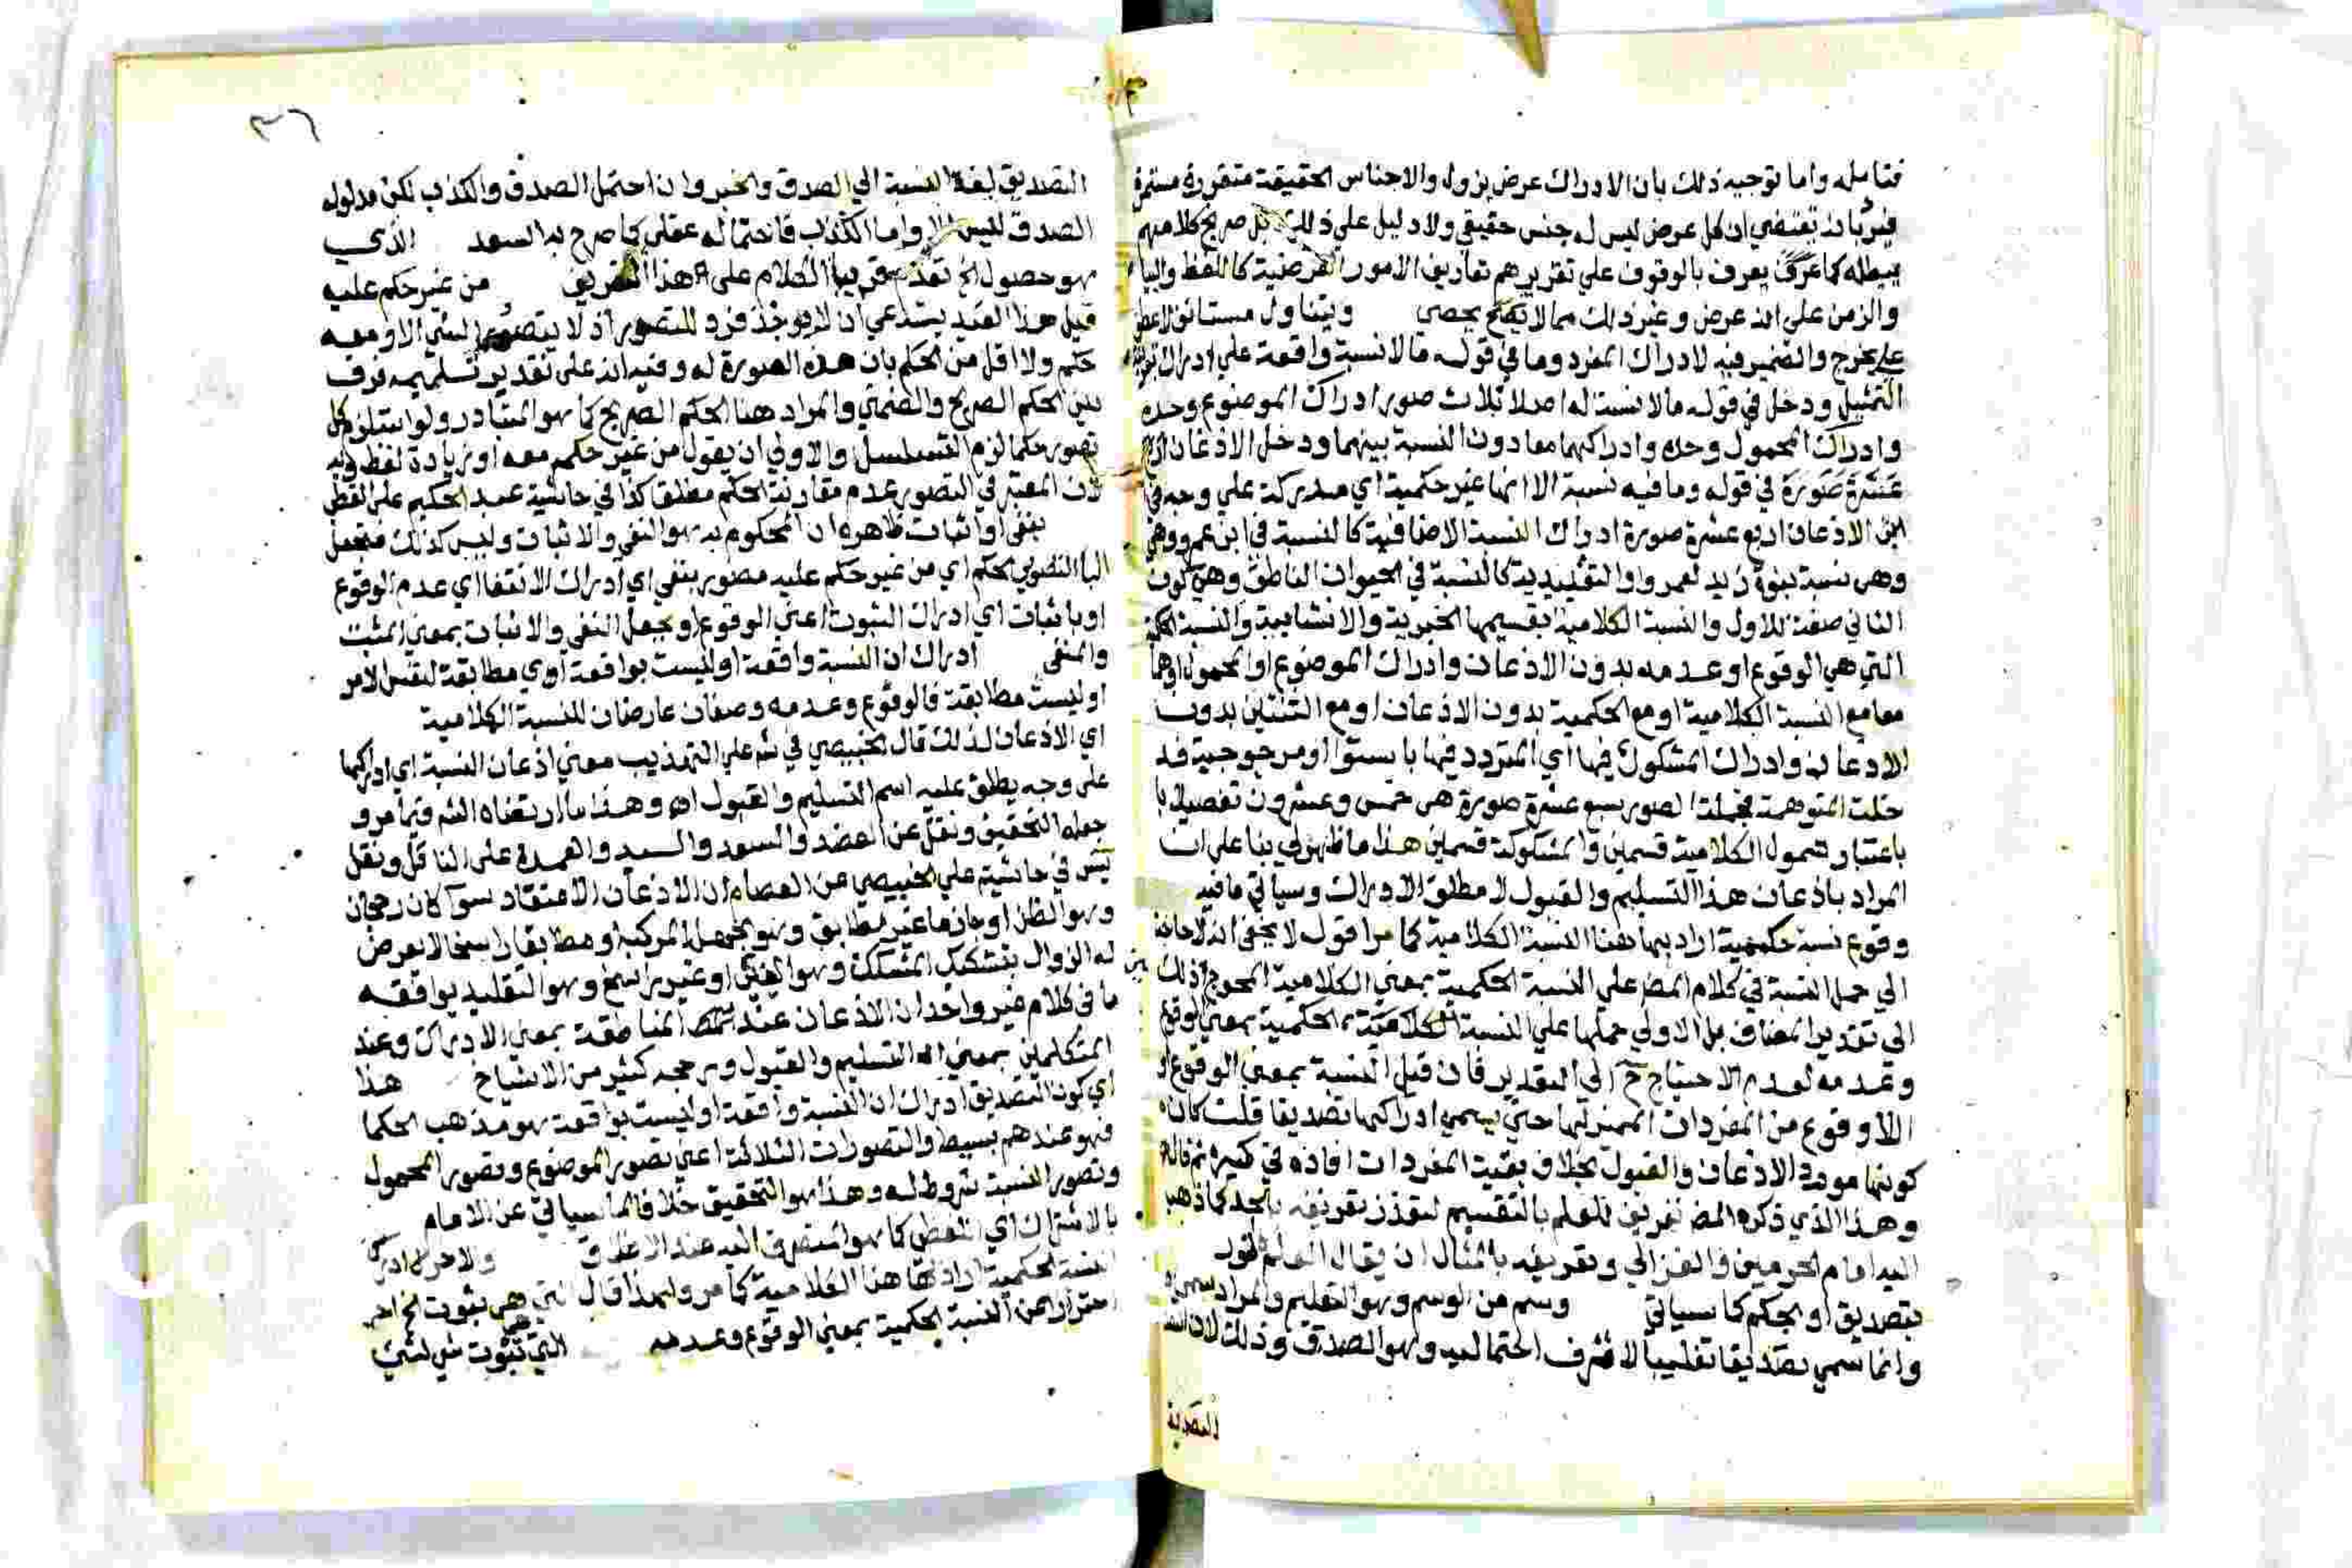 فتامله واما توجيه ذلك بان الادراك عرض يزول والاجناس الحقيقة متقررة مستمرة
فيرد بانه يقتضي ان كل عرض ليس له جنس حقيقي ولا دليل علي ذلك بل صريح كلامهم
يبطله كما يعرف بالوقوف علي تقريرهم تعاريف الامور العرضية كاللفظ والبياض
والزمن علي انه عرض وغير ذلك مما لا يكاد يحصي ويتناول مستانف لا عطف
علي يخرج والضمير فيه لادراك المفرد وما في قوله مالا نسبة واقعة علي ادراك
التمثيل ودخل في قوله مالا نسبة له اصلا ثلاث صور ادراك الموضوع وحده
وادراك المحمول وحده وادراكهما معا دون النسبة بينهما ودخل الاذعان اربع
عشرة صورة في قوله وما فيه نسبة الا انها غير حكمية اي مدركة علي وجه
الاذعان اربع عشرة صورة ادراك النسبة الاضافية كالنسبة في ابن عمرو وهي
وهي نسبة بنوة زيد لعمرو او التقييدية كالنسبة في الحيوان الناطق وهي كون
الثاني صفة للاول والنسبة الكلامية بقسيمها الخبرية والانشايية والنسبة الحكمية
التي هي الوقوع او عدمه بدون الاذعان وادراك الموضوع او المحمول او هما
معا مع النسبة الكلامية او مع الحكمية بدون الاذعان او مع الثنتين بدون
الاذعان وادراك المشكوك فيها اي المتردد فيها باستوا او مرجوحية فد
خلت المتوهمة فجملة الصور سبع عشرة صورة هي خمس وعشرون تفصيلا
باعتبار شمول الكلامية قسمين والمشكوكة قسمين هذا ما ظهر لي بنا علي ان
المراد باذعان هذا التسليم والقبول لا مطلق الادراك وسياتي ما فيه
وقوع نسبة حكمية اراد بها هنا النسبة الكلامية كما مر اقول لا يخفي انه لا حاجة
الي حمل النسبة في كلام المص علي النسبة الحكمية بمعني الكلامية المحوج ذلك
الي تقدير المضاف بل الاولي حملها علي النسبة الحكمية بمعني الوقوع
وعدمه لعدم الاحتياج ح الي التقدير فان قيل النسبة بمعني الوقوع او
اللاوقوع من المفردات المميز لها حتي يسمي ادراكها تصديقا قلت كان
كونها مورد الاذعان والقبول بخلاف بقية المفردات افاده في كبيره ثم قال
وهذا الذي ذكره المص تعريف للعلم بالتقسيم لتعذر تعريفه بالحد كما ذهب
اليه امام الحرمين والغزالي وتعريفه بالمثال ان يقال العلم
بتصديق او بحكم كما سياتي وسم من الوسم وهو التعليم والمراد
وانما سمي تصديقا تغليبا لاشرف احتماليه وهو الصدق وذلك لان
التصديق
٣٦
التصديق لغة النسبة الي الصدق والخبر وان احتمل الصدق والكذب لكن مدلوله
الصدق ليس الا واما الكذب فاحتماله عقلي كما صرح به السعد الذي
هو حصول الخ تقدم قريبا الكلام علي هذا التعريف من غير حكم عليه
قيل هذا القيد يستدعي ان لا يوجد فرد للتصور اذ لا يتصور شي الا ومعه
حكم ولا اقل من الحكم بان هذه الصورة له وفيه انه علي تقدير تسليمه فرق
بين الحكم الصريح والضمني والمراد هنا الحكم الصريح كما هو المتبادر ولو استلزم كل
تصور حكما لزم التسلسل والاولي ان يقول من غير حكم معه او زيادة لفظ وبه
لان المعتبر في التصور عدم مقارنة الحكم مطلقا كذا في حاشية عبد الحكيم علي القطب
بنفي او اثبات ظاهره ان المحكوم به هو النفي والاثبات وليس كذلك فتجعل
البا لتصوير الحكم اي من غير حكم عليه مصور بنفي اي ادراك الانتفا اي عدم الوقوع
او باثبات اي ادراك الثبوت اعني الوقوع او يجعل النفي والاثبات بمعني المثبت
والمنفي ادراك ان النسبة واقعة او ليست بواقعة اي مطابقة لنفس الامر
او ليست مطابقة فالوقوع وعدمه وصفان عارضان للنسبة الكلامية
اي الاذعان لذلك قال الخبيصي في شرحه علي التهذيب معني اذعان النسبة اي ادراكها
علي وجه يطلق عليه اسم التسليم والقبول اه وهذا ما ارتضاه الشر فيما مر و
جعله التحقيق ونقل عن العضد والسعد والسيد والعمدة علي الناقل ونقل
يس في حاشيته علي الخبيصي عن العصام ان الاذعان الاعتقاد سوا كان رجحان
وهو الظن او جازما غير مطابق وهو الجهل المركب او مطابقا راسخا لا يعرض
له الزوال بتشكيك المشكك وهو اليقين او غير راسخ وهو التقليد يوافقه
ما في كلام غير واحد ان الاذعان عند المناطقة بمعني الادراك وعند
المتكلمين بمعني التسليم والقبول ورجحه كثير من الاشياخ هذا
اي كون التصديق ادراك ان النسبة واقعة او ليست بواقعة هو مذهب الحكما
فهو عندهم بسيط والتصورات الثلاثة اعني تصور الموضوع وتصور المحمول
وتصور النسبة شروط له وهذا هو التحقيق خلافا لما سياتي عن الامام
بالاشتراك اي اللفظي كما هو المنصرف اليه عند الاطلاق
النسبة الحكمية اراد بها هنا الكلامية كما مر ولهذا قال التي هي ثبوت الخ
احترازا عن النسبة الحكمية بمعني الوقوع وعدمه التي هي ثبوت شي لشي